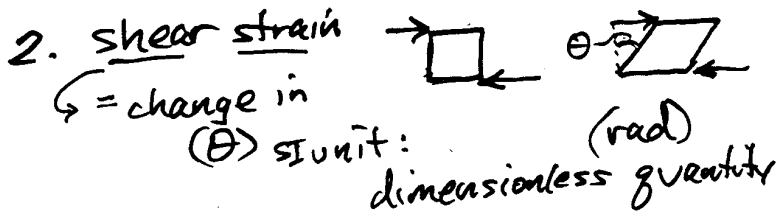 2. shear strain
θ
= change in
(θ) SI unit: (rad)
dimensionless quantity